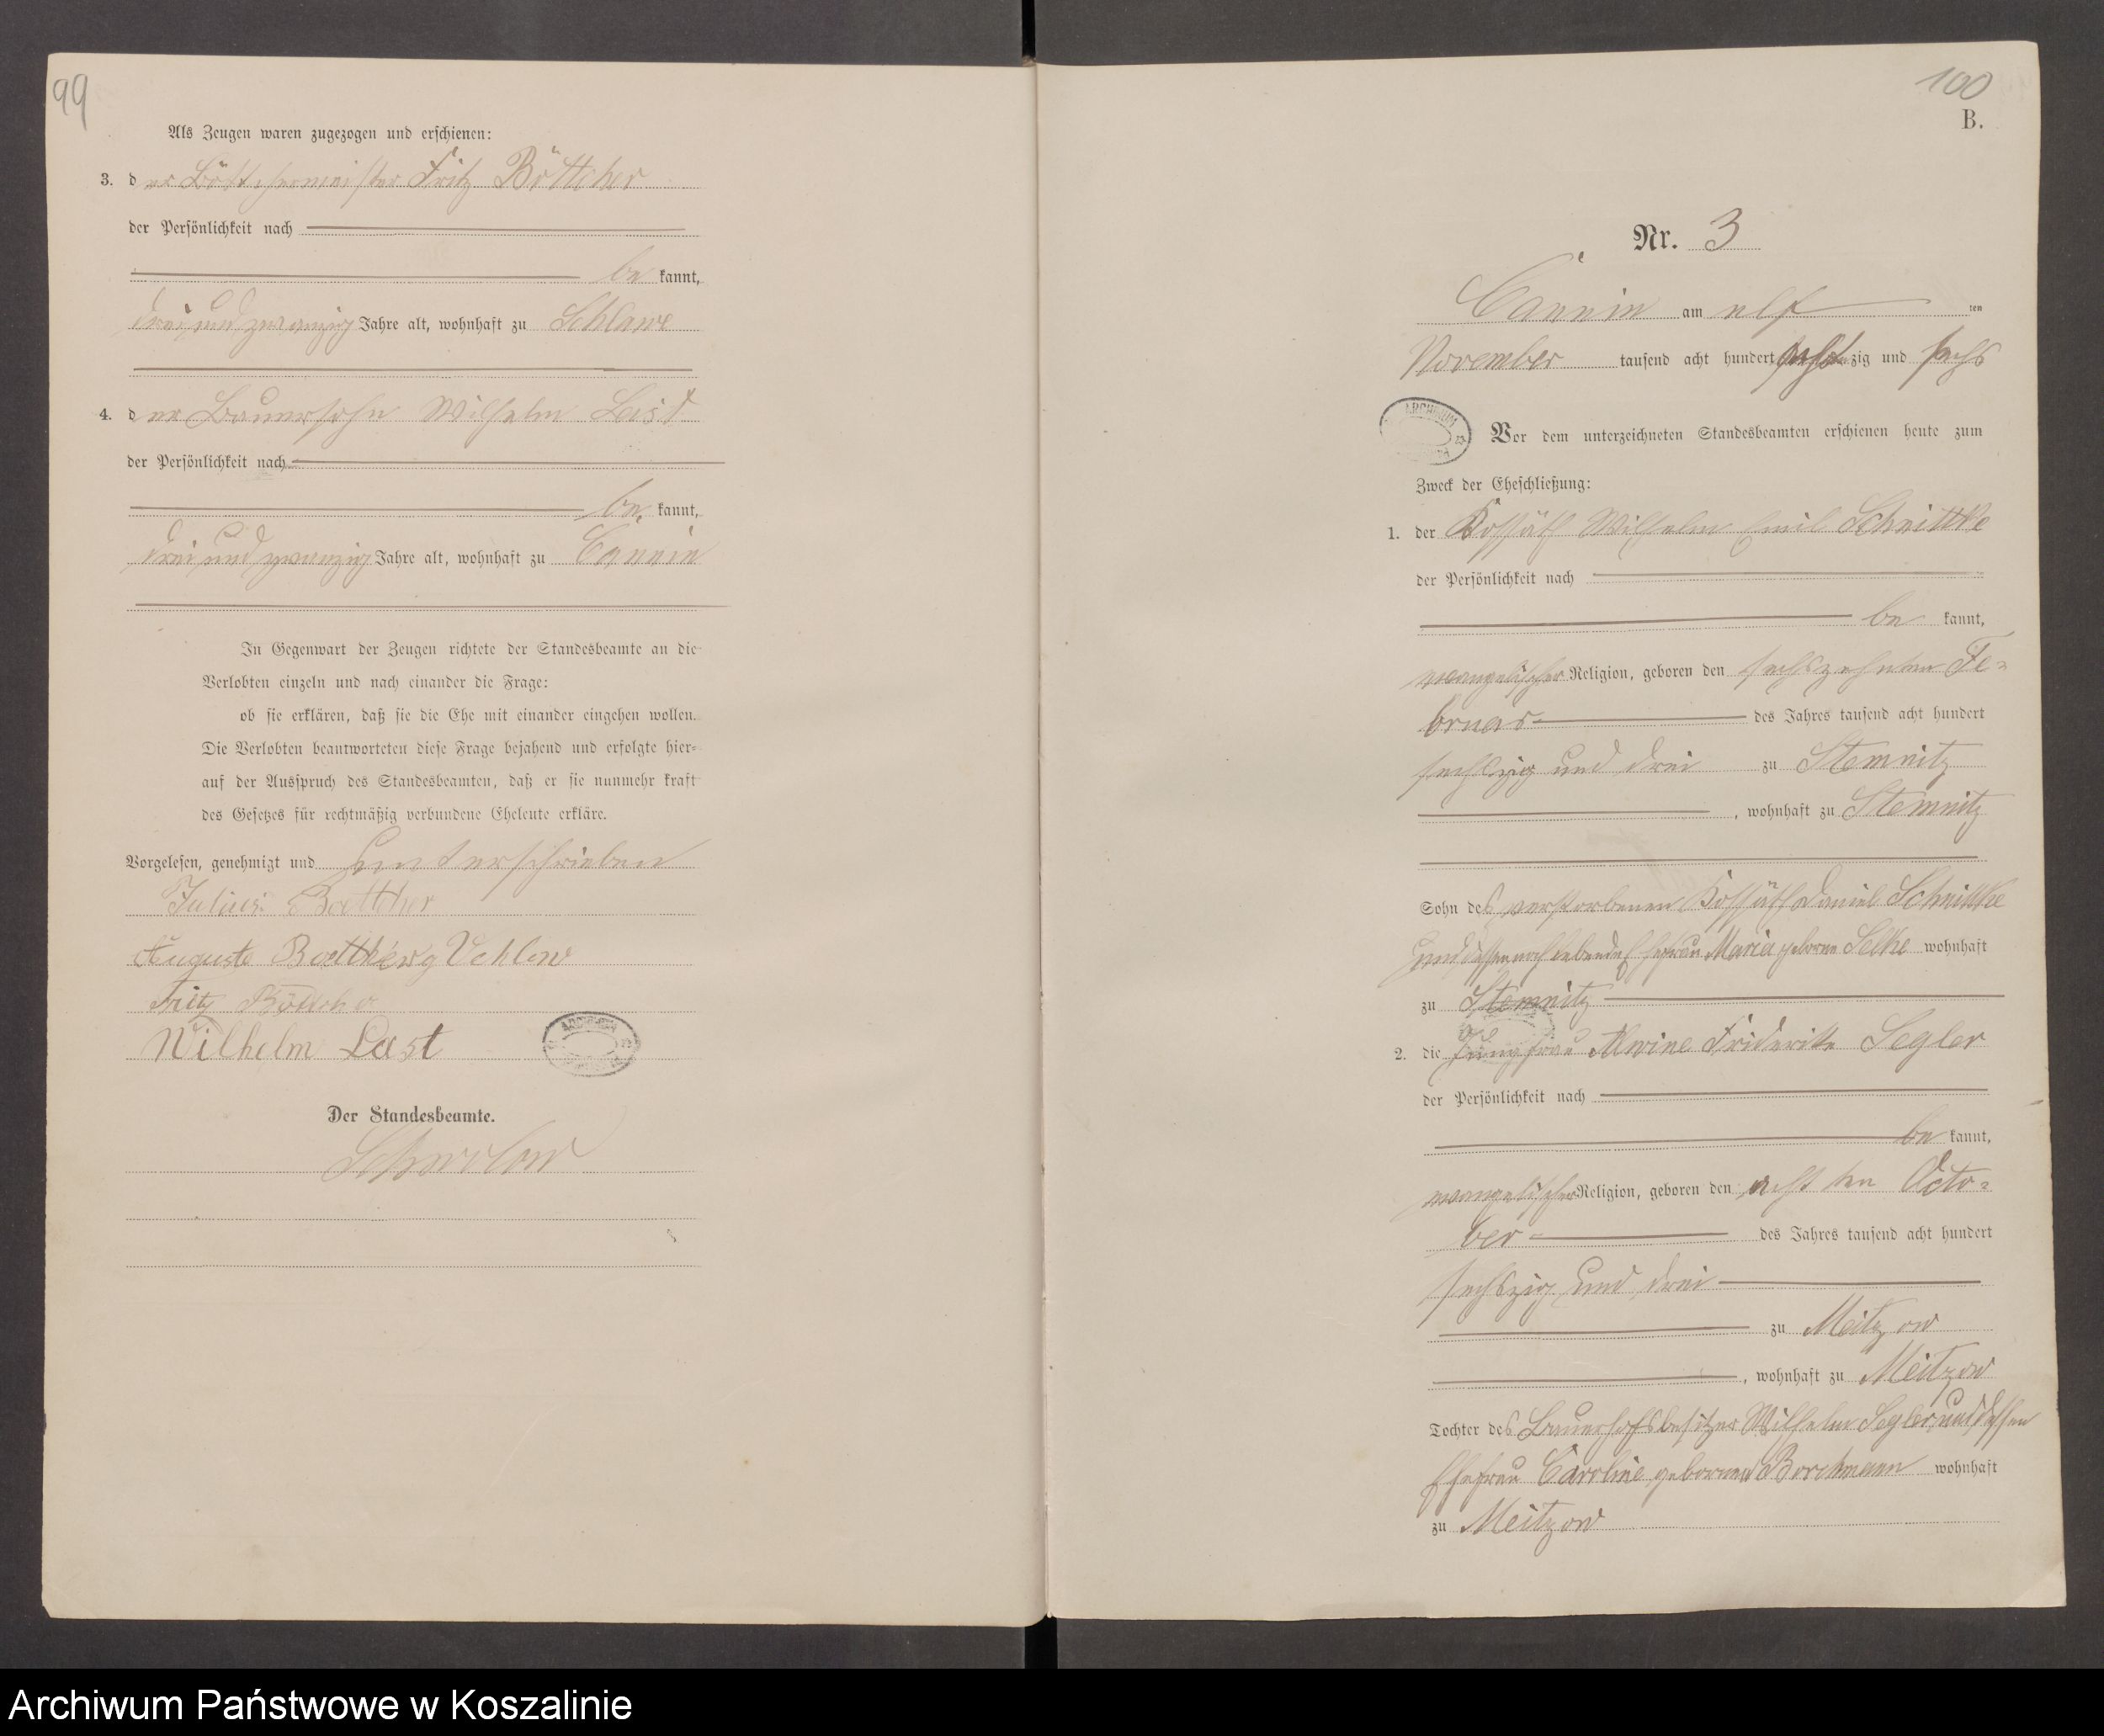 99
Als Zeugen waren zugezogen und erschienen:
3. der Böttchermeister Fritz Böttcher
der Persönlichkeit nach
be kannt,
drei und zwanzig Jahre alt, wohnhaft zu Schlawe
4. der Bauersohn Wilhelm Last
der Persönlichkeit nach
be kannt,
drei und zwanzig Jahre alt, wohnhaft zu Cannin
In Gegenwart der Zeugen richtete der Standesbeamte an die
Verlobten einzeln und nach einander die Frage:
ob sie erklären, daß sie die Ehe mit einander eingehen wollen.
Die Verlobten beantworteten diese Frage bejahend und erfolgte hier=
auf der Ausspruch des Standesbeamten, daß er sie nunmehr kraft
des Gesetzes für rechtmäßig verbundene Eheleute erkläre.
Vorgelesen, genehmigt und unterschrieben
Julius Boettcher
Auguste Boettcher g Vehlow
Fritz Böttcher
Wilhelm Last
Der Standesbeamte.
100
B.
Nr. 3
Cannin am elf ten
November tausend acht hundert acht zig und sechs
ARCHIWUM
Vor dem unterzeichneten Standesbeamten erschienen heute zum
Zweck der Eheschließung:
1. der Kossäth Wilhelm Emil Schnittke
der Persönlichkeit nach
be kannt,
evangelischer Religion, geboren den sechszehnten Fe=
bruar des Jahres tausend acht hundert
sechszig und drei zu Stemnitz
, wohnhaft zu Stemnitz
Sohn des verstorbenen Kossäth Daniel Schnittke
und dessen noch lebende Ehefrau Maria geborne Selke wohnhaft
zu Stemnitz
2. die Jungfrau Alwine Friderike Segler
der Persönlichkeit nach
be kannt,
evangelischer Religion, geboren den acht ten Octo=
ber des Jahres tausend acht hundert
sechszig und drei
zu Meitzow
, wohnhaft zu Meitzow
Tochter des Bauerhofsbesitzer Wilhelm Segler und dessen
Ehefrau Caroline geborne Borchmann wohnhaft
zu Meitzow
Archiwum Państwowe w Koszalinie